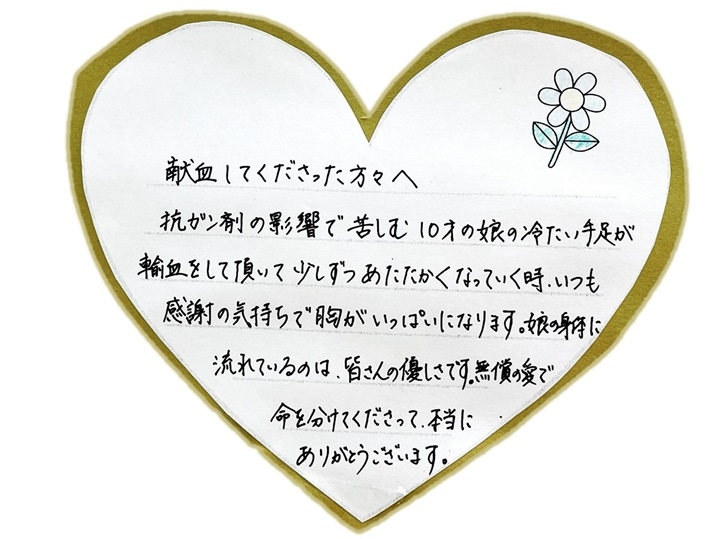 献血してくださった方々へ
抗ガン剤の影響で苦しむ10才の娘の冷たい手足が
輸血をして頂いて少しずつあたたかくなっていく時、いつも
感謝の気持ちで胸がいっぱいになります。娘の身体に
流れているのは、皆さんの優しさです。無償の愛で
命を分けてくださって、本当に
ありがとうございます。